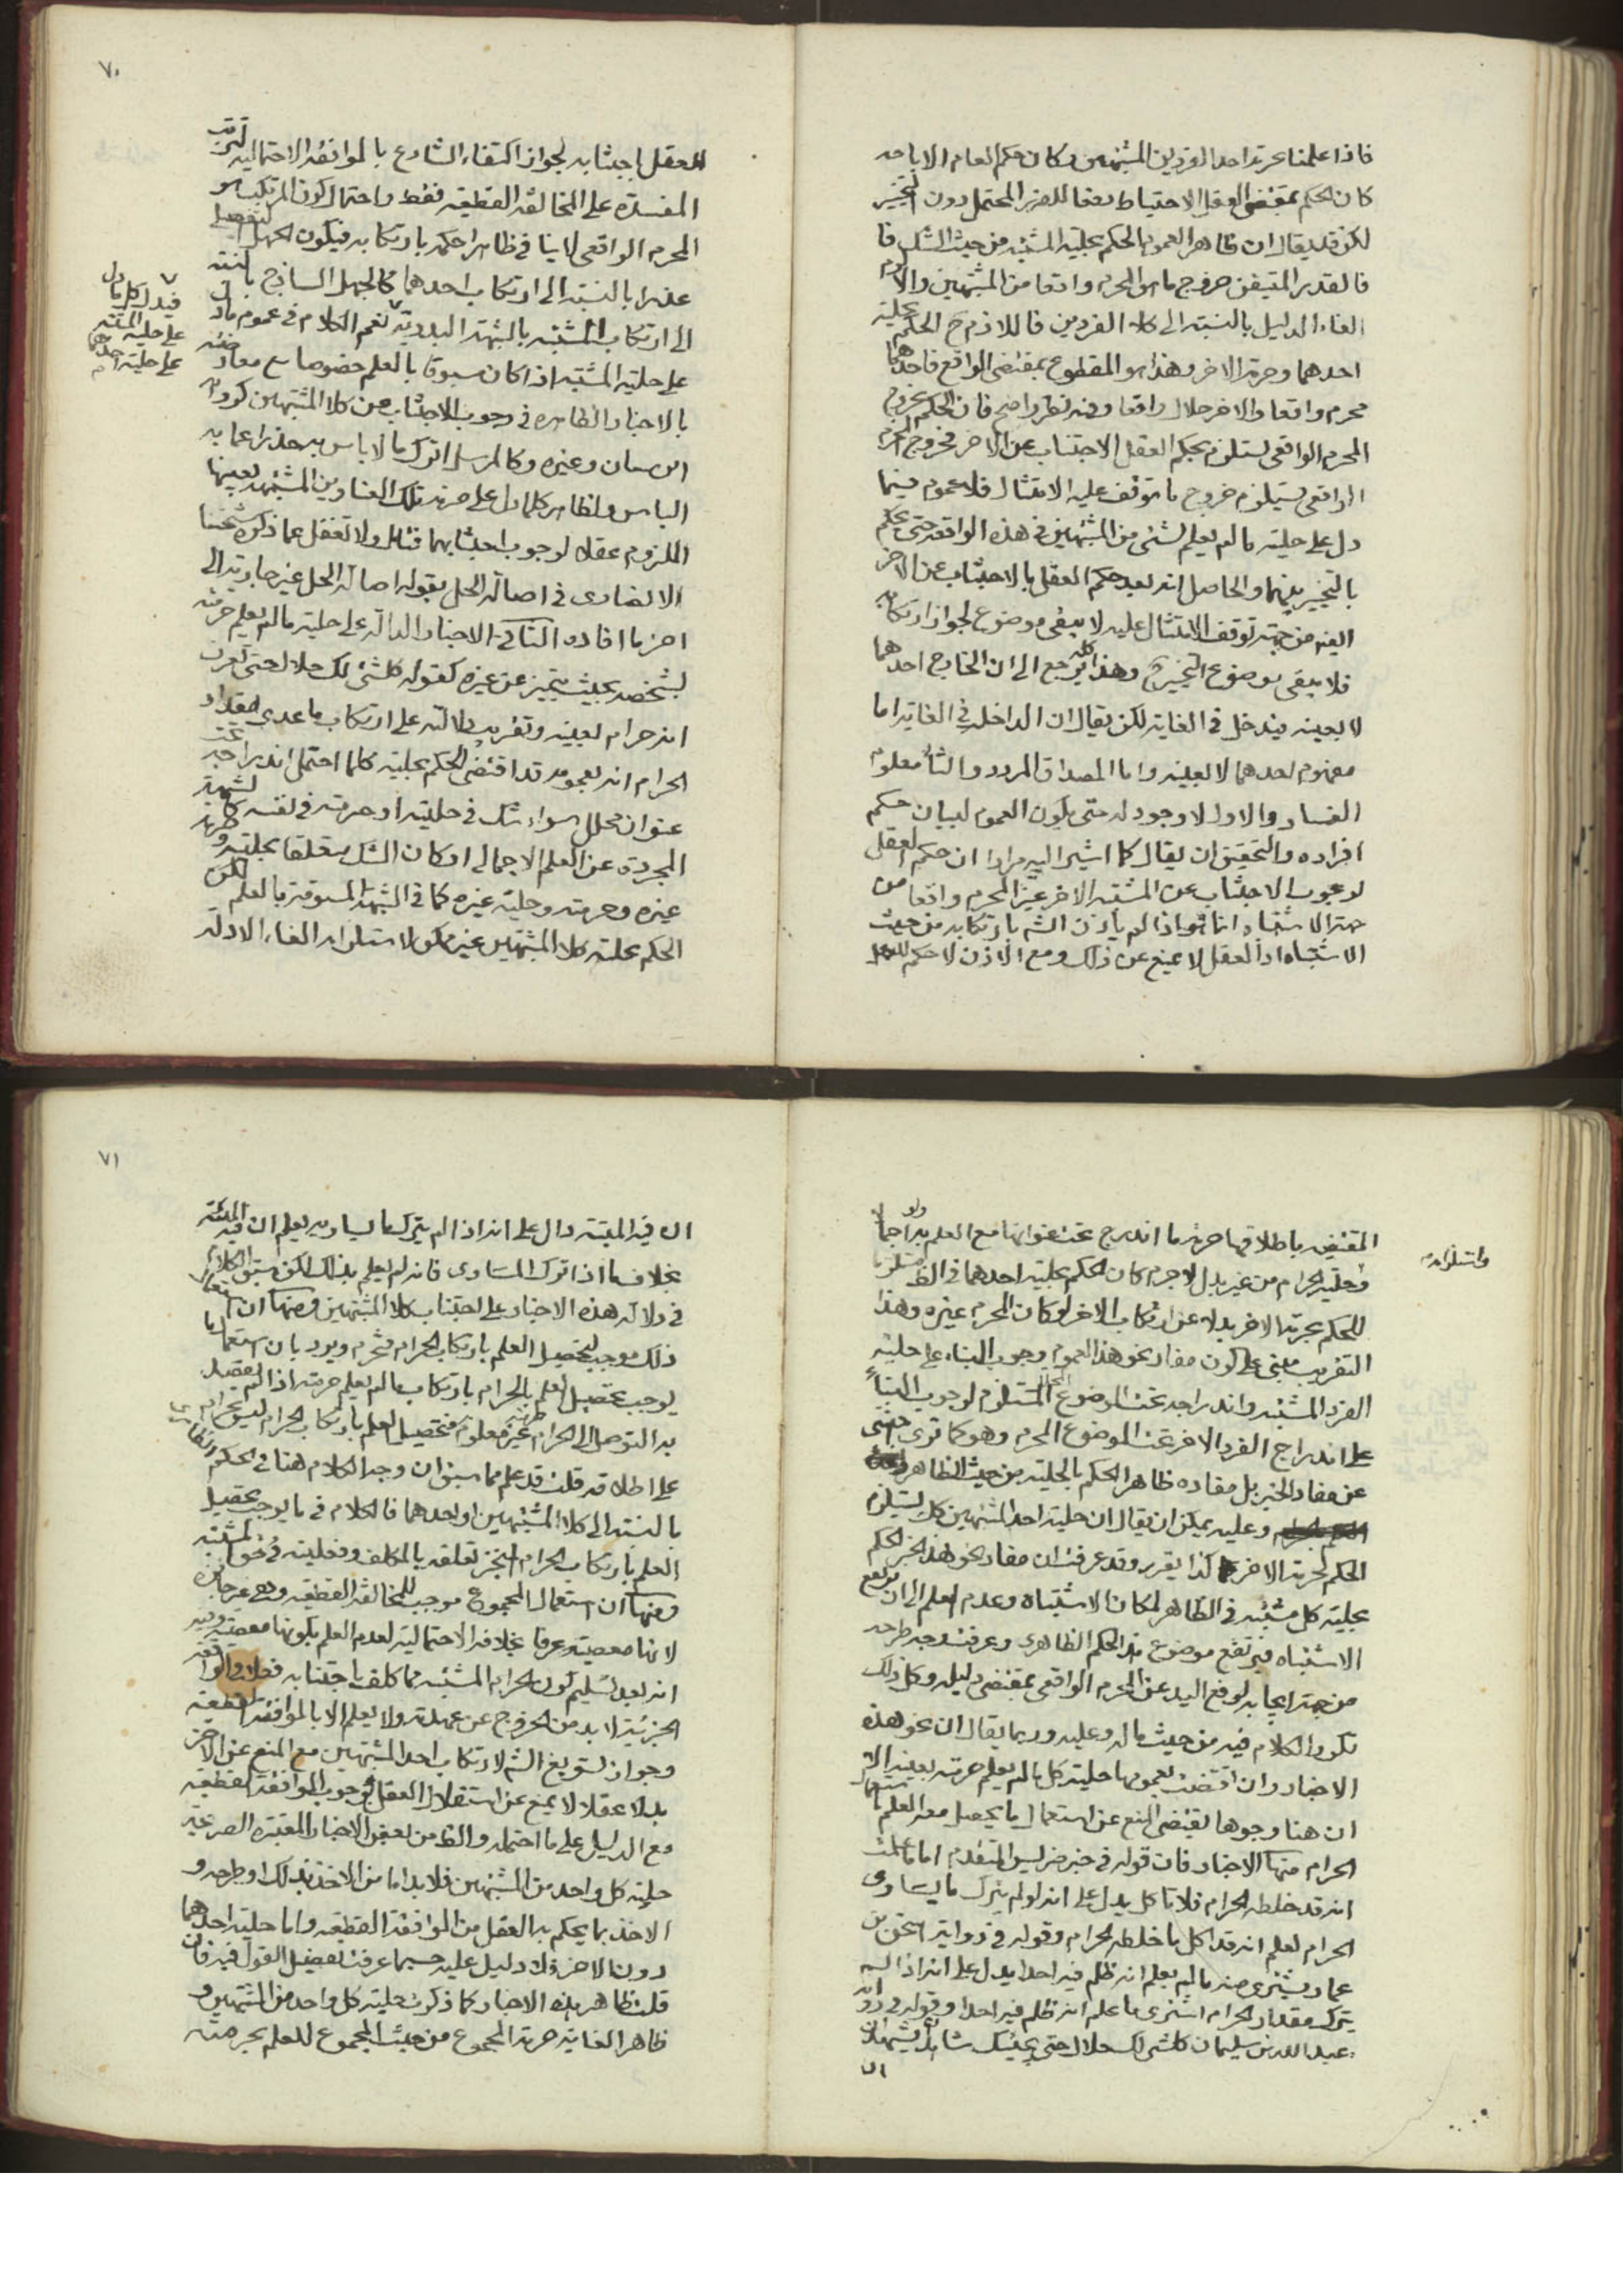 فاذا علمنا حرمة احد الفردين المشتبهين وكان حكم العام الاباحه
كان الحكم بمقتضى العقل الاحتياط دفعا للضرر المحتمل دون التخيير
لكن قد يقال ان ظاهر العموم الحكم بحلية المشتبه من حيث الشك فا
فالقدر المتيقن خروج ما هو المحرم واقعا من المشتبهين والا لزم
الغاء الدليل بالنسبة الى كلا الفردين فاللازم ح الحكم بحلية
احدهما وحرمة الاخر وهذا هو المقطوع بمقتضى الواقع فاحدهما
محرم واقعا والاخر حلال واقعا وفيه نظر واضح فان الحكم بخروج
المحرم الواقعى يستلزم بحكم العقل الاجتناب عن الاخر فخروج المحرم
الواقعى يستلزم خروج ما يتوقف عليه الامتثال فلا عموم فيما
دل على حلية ما لم يعلم لشئ من المشتبهين فى هذه الواقعة حتى يحكم
بالتخيير بينهما والحاصل انه بعد حكم العقل بالاجتناب عن الاخر
ايضه من جهة توقف الامتثال عليه لا يبقى موضوع لجواز ارتكابه
فلا يبقى موضوع التخيير وهذا كله يرجع الى ان الخارج احدهما
لا بعينه فيدخل فى الغاية لكن يقال ان الداخل فى الغاية اما
مفهوم احدهما لا بعينه واما المصداق المردد والثانى معلوم
الفساد والاول لا وجود له حتى يكون العموم لبيان حكم
افراده والتحقيق ان يقال كما اشير اليه مرارا ان حكم العقل
لوجوب الاجتناب عن المشتبه الاخر غير المحرم واقعا من
جهة الاشتباه انما هو اذا لم ياذن الشه بارتكابه من حيث
الاشتباه اذ العقل لا يمنع عن ذلك ومع الاذن لا حكم للعقل
٧٠
العقل باجتنابه لجواز اكتفاء الشارع بالموافقة الاحتمالية لترتب
المفسدة على المخالفة القطعية فقط واحتمال كون المرتكب هو
المحرم الواقعى لا ينافى ظاهرا حكمه بارتكابه فيكون الجهل التفصيلى
عذرا بالنسبة الى ارتكاب احدهما كالجهل الساذج بالنسبة
الى ارتكاب المشتبه بالشبهة البدوية نعم الكلام فى عموم ما دل
على حلية المشتبه اذا كان مسبوقا بالعلم خصوصا مع معارضته
بالاخبار الظاهره فى وجوب الاجتناب عن كلا المشتبهين كرواية
ابن سنان وغيره وكالمرسل اترك ما لا باس به حذرا عما به
الباس والظاهر كلما دل على حرمة تلك العناوين المشتبهة بعينها
الملزوم عقلا لوجوب اجتنابهما فتامل ولا تغفل عما ذكره شيخنا
الانصارى فى اصالة الحل بقوله اصالة الحل غير جارية الى
اخر ما افاده الثانى الاخبار الدالة على حلية ما لم يعلم حرمته
بشخصه بحيث يتميز عن غيره كقوله كلشئ لك حلال حتى تعرف
انه حرام بعينه وتقريب دلالته على ارتكاب ما عدى مقدار
الحرام انه بعمومه قد اقتضى الحكم بحلية كلما احتمل اندراجه تحت
عنوان محلل سواء شك فى حليته او حرمته فى نفسه كالشبهة
المجردة عن العلم الاجمالى او كان الشك متعلقا بحليته وحرمة
غيره وحرمته وحلية غيره كما فى الشبهة المسبوقة بالعلم لكن
الحكم بحلية كلا المشتبهين غير ممكن لاستلزامه الغاء الادلة
فيدل كل ما دل
على حلية المشتبه
على حلية احدهما
المقتضيه باطلاقها حرمة ما اندرج تحت عنوانها مع العلم به ولو اجمالا
واستلزامه
وحلية الحرام من غير بدل لا جرم كان الحكم بحلية احدهما فى الظ مستلزما
للحكم بحرمة الاخر بدلا عن ارتكاب الاخر لو كان المحرم غيره وهذا
التقريب مبنى على كون مفاد نحو هذا العموم وجوب البناء على حلية
الفرد المشتبه واندراجه تحت الموضوع المحلل المستلزم لوجوب البناء
على اندراج الفرد الاخر تحت الموضوع المحرم وهو كما ترى اجنبى
عن مفاد الخبر بل مفاده ظاهرا الحكم بالحلية من حيث الظاهر
وعليه يمكن ان يقال ان حلية احد المشتبهين كك يستلزم
الحكم لحرمة الاخر كذا يقرر وقد عرفت ان مفاد نحو هذا الخبر الحكم
بحلية كل مشتبه فى الظاهر لمكان الاشتباه وعدم العلم الى ان يرتفع
الاشتباه فيرتفع موضوع هذا الحكم الظاهرى وعرفت وجه طرحه
من جهة ايجابه لرفع اليد عن المحرم الواقعى بمقتضى دليله وكل ذلك
تكرر الكلام فيه من حيث ما له وعليه وربما يقال ان نحو هذه
الاخبار وان اقتضت بعمومها حلية كل ما لم يعلم حرمته بعينه الا
ان هنا وجوها تقتضى المنع عن استعمال ما يحصل معه العلم باستعمال
الحرام منها الاخبار فان قوله فى خبر ضريس المتقدم اما ما علمت
انه قد خلطه الحرام فلا تاكل يدل على انه لو لم يترك ما يساوى
الحرام لعلم انه قد اكل ما خلطه الحرام وقوله فى رواية اسحق بن
عمار يشترى منه ما لم يعلم انه ظلم فيه احدا يدل على انه اذا لم
يترك مقدار الحرام اشترى ما علم انه ظلم فيه احدا وقوله فى رواية
عبد الله بن سليمان كلشئ لك حلال حتى يجيئك شاهدان يشهدان
ان
٧١
ان فيه الميتة دال على انه اذا لم يترك ما يساويه يعلم ان فيه الميتة
بخلاف ما اذا ترك المساوى فانه لم يعلم بذلك لكن سبق الكلام
فى دلالة هذه الاخبار على اجتناب كلا المشتبهين ومنها ان استعمال
ذلك موجب لتحصيل العلم بارتكاب الحرام فيحرم ويرد بان استعمال ما
يوجب تحصيل العلم بالحرام بارتكاب ما لم يعلم حرمته اذا لم يقصد
به التوصل الى الحرام غير معلوم حرمته فتحصيل العلم بارتكاب الحرام ليس بحرام
على اطلاقه قلت قد علم مما سبق ان وجه الكلام هنا فى الحكم الظاهرى
بالنسبة الى كلا المشتبهين او احدهما فالكلام فى ما يوجب تحصيل
العلم بارتكاب الحرام المنجز تعلقه بالمكلف وفعليته فى حق المشتبه
ومنها ان استعمال المجموع موجب للمخالفة القطعية وهى غير جائزة
لانها معصية عرفا بخلاف الاحتمالية لعدم العلم بكونها معصية وفيه
انه بعد تسليم كون الحرام المشتبه مما كلف باجتنابه فعلا والواقعة
الجزئية لا بد من الخروج عن عهدته ولا يعلم الا بالموافقة القطعية
وجواز تسويغ الشه لارتكاب احد المشتبهين مع المنع عن الاخر
بدلا عقلا لا يمنع عن استقلال العقل بوجوب الموافقة القطعية
مع الدليل على ما احتمله والظ من بعض الاخبار المعتبره الصريحة
حلية كل واحد من المشتبهين فلا بد اما من الاخذ بذلك او طرحه و
الاخذ بما يحكم به العقل من الموافقة القطعيه واما حلية احدهما
دون الاخر فلا دليل عليه حسبما عرفت تفصيل القول فيه فان
قلت ظاهر هذه الاخبار كما ذكرت حلية كل واحد من المشتبهين و
ظاهر الغاية حرمة المجموع من حيث المجموع للعلم بحرمته